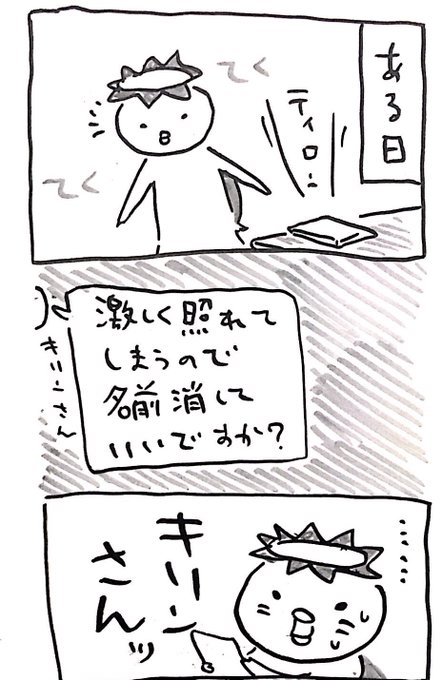 ある日
ティロン
てく
てく
激しく照れて
しまうので
名前消して
いいですか?
キリンさん
‥‥‥
キリン
さんッ